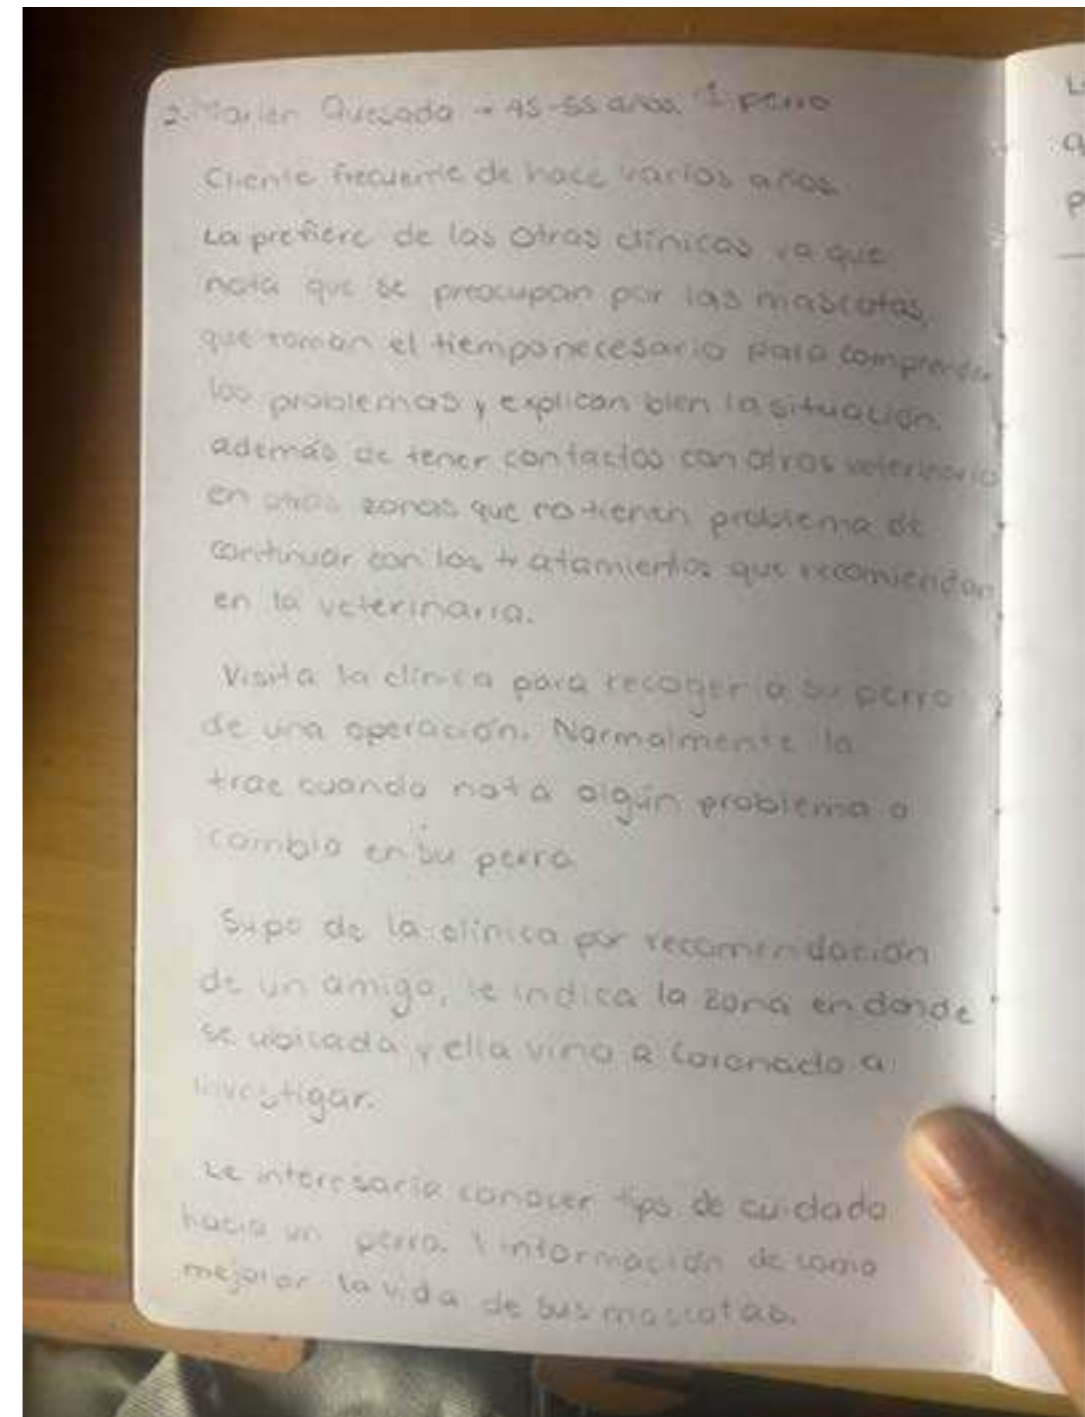 2. Marlen Quesada → 45-55 años. 1 perro
Cliente frecuente de hace varios años.
La prefiere de las otras clínicas ya que
nota que se preocupan por las mascotas,
que toman el tiempo necesario para comprender
los problemas y explican bien la situación.
además de tener contactos con otros veterinario
en otras zonas que no tienen problema de
continuar con los tratamientos que recomiendan
en la veterinaria.
Visita la clínica para recoger a su perro
de una operación. Normalmente la
trae cuando nota algún problema o
cambio en su perro.
Supo de la clínica por recomendación
de un amigo, le indica la zona en donde
se ubicada y ella vino a Coronado a
investigar.
Le interesaría conocer tips de cuidado
hacia un perro. Y información de como
mejorar la vida de sus mascotas.